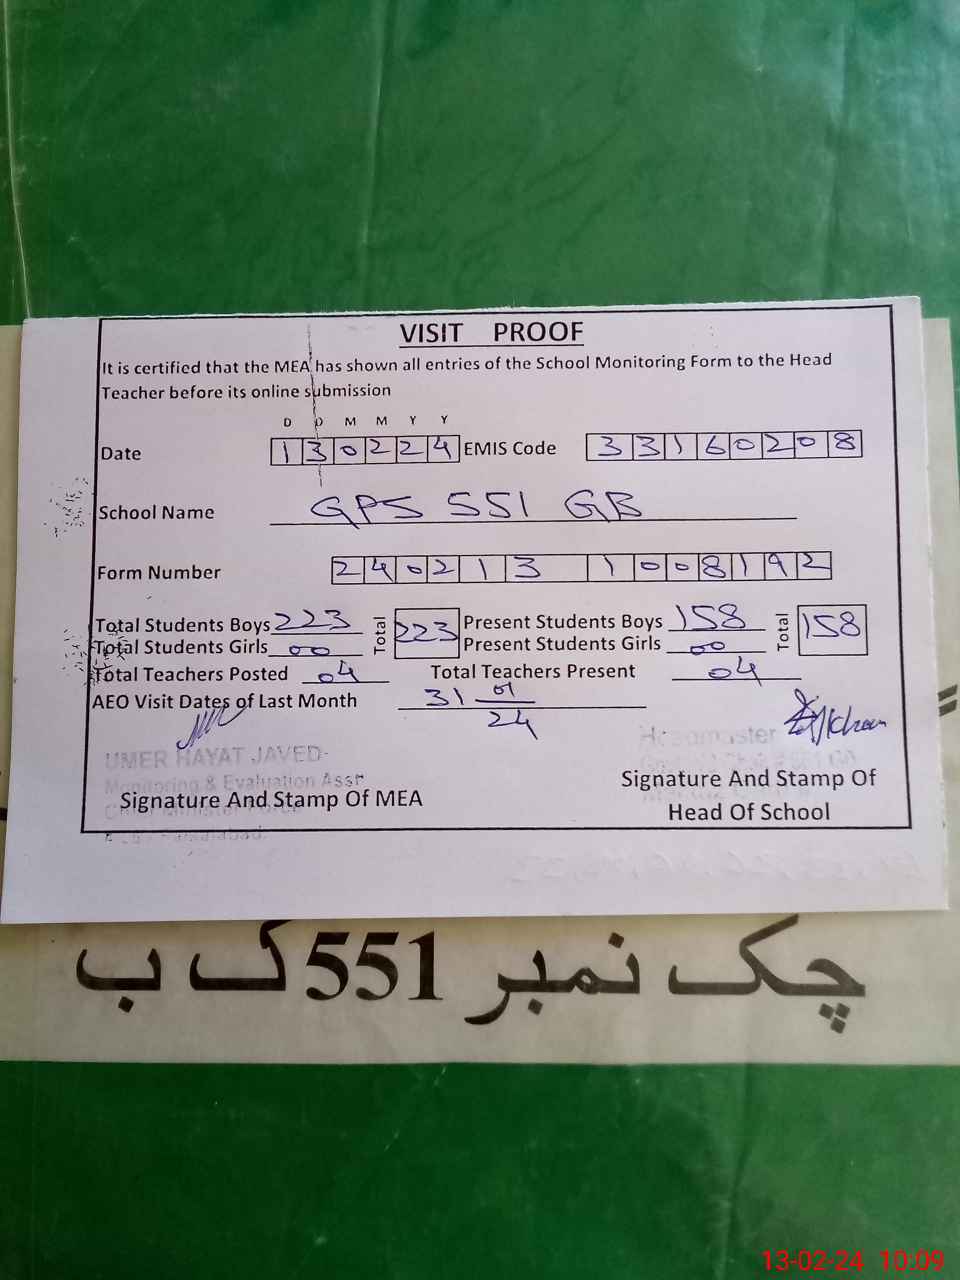 VISIT PROOF
It is certified that the MEA has shown all entries of the School Monitoring Form to the Head
Teacher before its online submission
D D M M Y Y
Date 1 3 0 2 2 4 EMIS Code 3 3 1 6 0 2 0 8
School Name GPS 551 GB
Form Number 2 4 0 2 1 3 1 0 0 8 1 9 2
Total Students Boys 223 Total 223 Present Students Boys 158 Total 158
Total Students Girls 00 Present Students Girls 00
Total Teachers Posted 04 Total Teachers Present 04
AEO Visit Dates of Last Month 31 01 24
UMER HAYAT JAVED
Monitoring & Evaluation Asst
Headmaster
Signature And Stamp Of MEA
Signature And Stamp Of
Head Of School
چک نمبر 551 گ ب
13-02-24 10:09